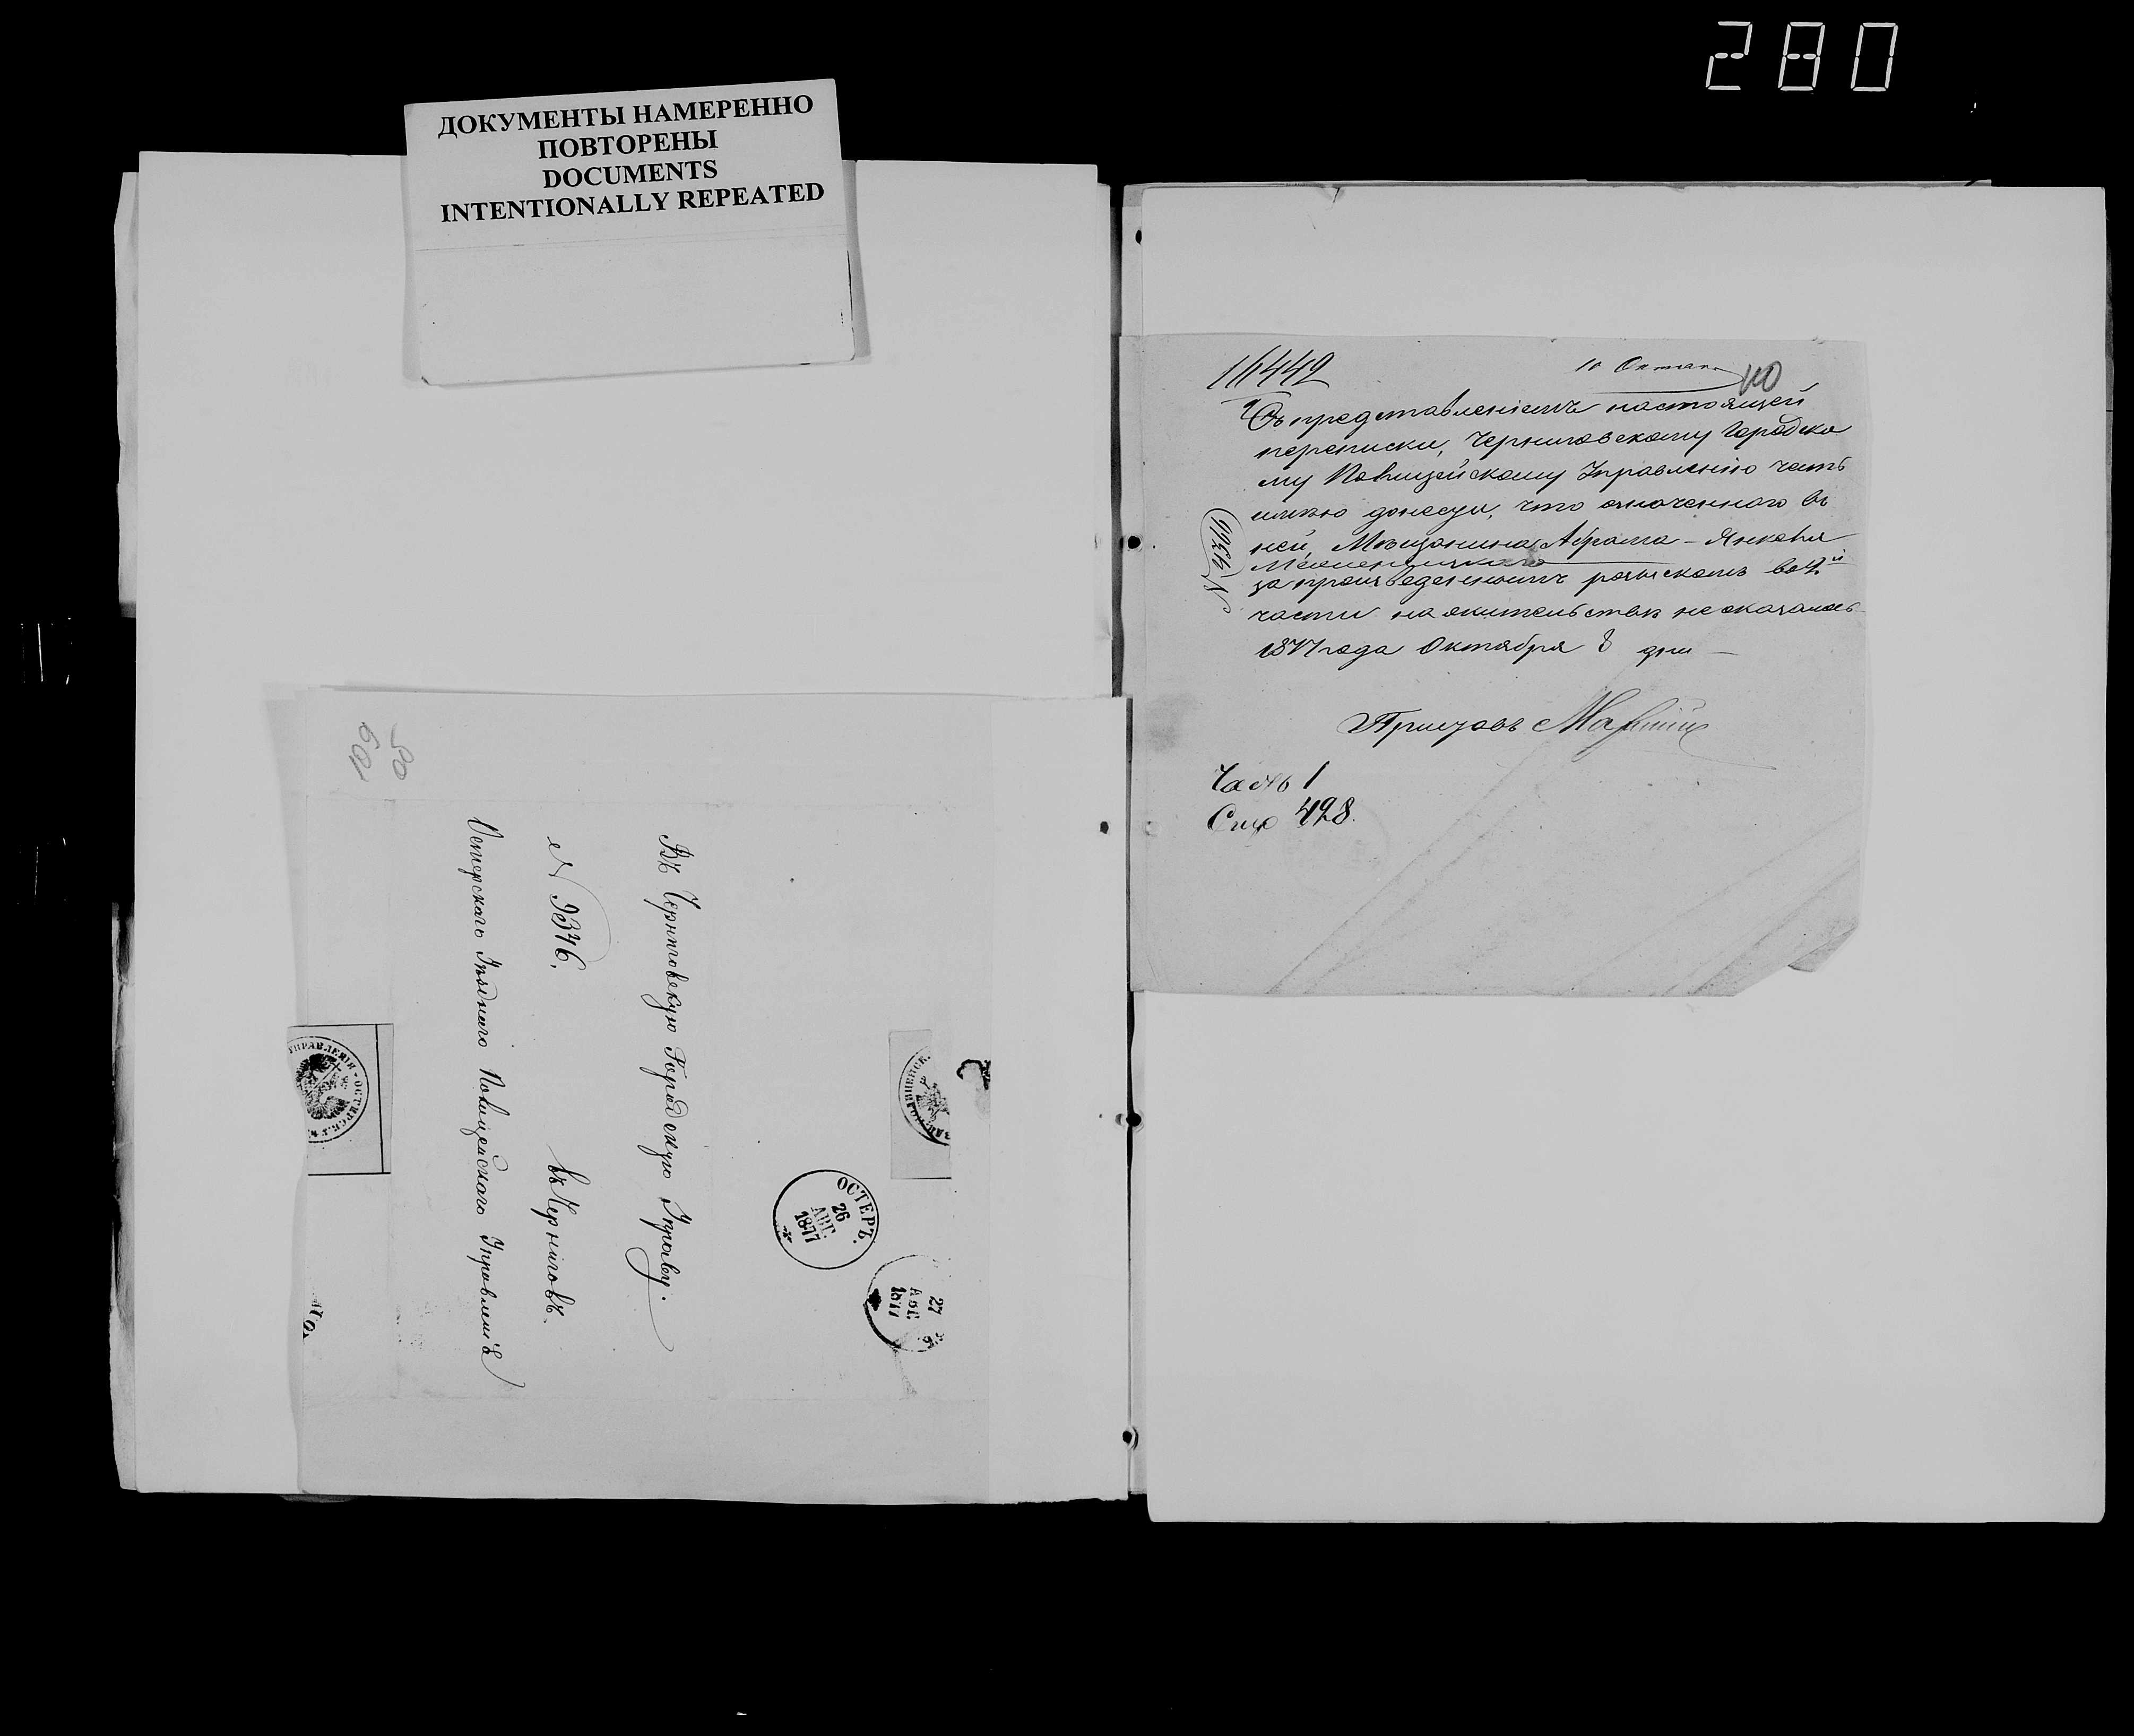 280
ДОКУМЕНТЫ НАМЕРЕННО
ПОВТОРЕНЫ
DOCUMENTS
INTENTIONALLY REPEATED
109
Въ Черниговскую Городскую Управу.
N 9346.
въ Черниговъ.
Остерскаго Уѣзднаго Полицейскаго Управленія
УПРАВЛЕНІЯ ОСТЕРСК
ОСТЕРЪ.
26
АВГ.
1877
27
АВГ.
1877
110
10 Октяб
Съ представленіемъ настоящей
переписки, Черниговскому Городско
му Полицейскому Управленію честь
имѣю донести, что означеннаго въ
ней, Мѣщанина Абрама-Янкеля
за произведеннымъ розыскомъ во 2й
части на жительствѣ не оказалось
1877 года Октября 8 дня
Приставъ
Часть 1
498.